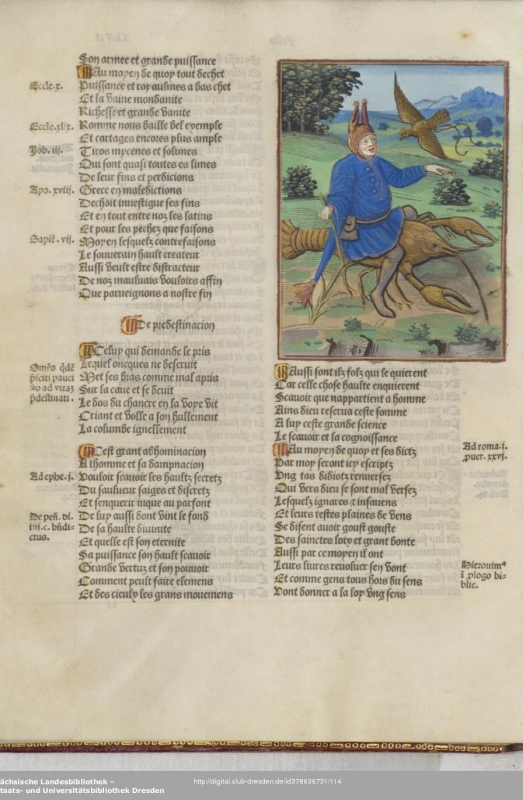 Son armee et grande puissance
Au moyen de quoy tout dechet
Eccle.x.
Puissance et royaulmes a bas chet
Et la vaine mondanite
Richesse et grande vanite
Romme nous baille bel exemple
Et cartages encores plus ample
Job. iij.
Tiros mycenes et solunes
Qui sont quasi toutes es limes
De leur fins et perdicions
Apo. xviij.
Grece en maledictions
Dechoit inuestigue ses fins
Et en tout entre noz les latins
Et pour les pechez que faisons
Sapiē. vij.
Moyen lesquelz contrefaisons
Le souuerain hault createur
Aussi veult estre distracteur
De noz mauluais vouloirs affin
Que parueignons a nostre fin
De predestinacion
Celuy qui demande le pris
Lequel oncques ne deseruit
Met ses bras comme mal apris
Sur la caue et se deuit
Le dos du chancre en la voye vit
Criant et volle a son hullement
La columbe ignellement
Cest grant abhominacion
A lhomme et sa dampnacion
Ad ephe. j.
Vouloir scauoir les haultz secretz
Du saulueur saiges et discretz
Et senquerir iusque au parfont
De luy aussi dont vint le fond
De sa haulte diuinite
Et quelle est son eternite
Sa puissance son hault scauoir
Grande vertuz et son pouoir
Comment peult faire elemens
Et des cieulx les grans mouemens
Aussi sont ilz folz qui se quierent
Car telle chose haulte enquierent
Scauoir que nappartient a homme
Ains dieu reserua ceste somme
A luy ceste grande science
Le scauoir et la cognoissance
Au moyen de quoy et ses dictz
Ad roma. j.
puer. xxvj.
Par moy seront icy escriptz
Vng tas didiotz renuersez
Qui vers dieu se sont mal versez
Lesquelz ignares et insauens
Et leurs testes plaines de vens
Se disent auoir goust gouste
Des sainctes loix et grant honte
Aussi par ce moyen il ont
Leurs liures reuoluer sen vont
Et comme gens tous hors du sens
Vont donner a la loy vng sens
Sächsische Landesbibliothek –
Staats- und Universitätsbibliothek Dresden
http://digital.slub-dresden.de/id378636731/114